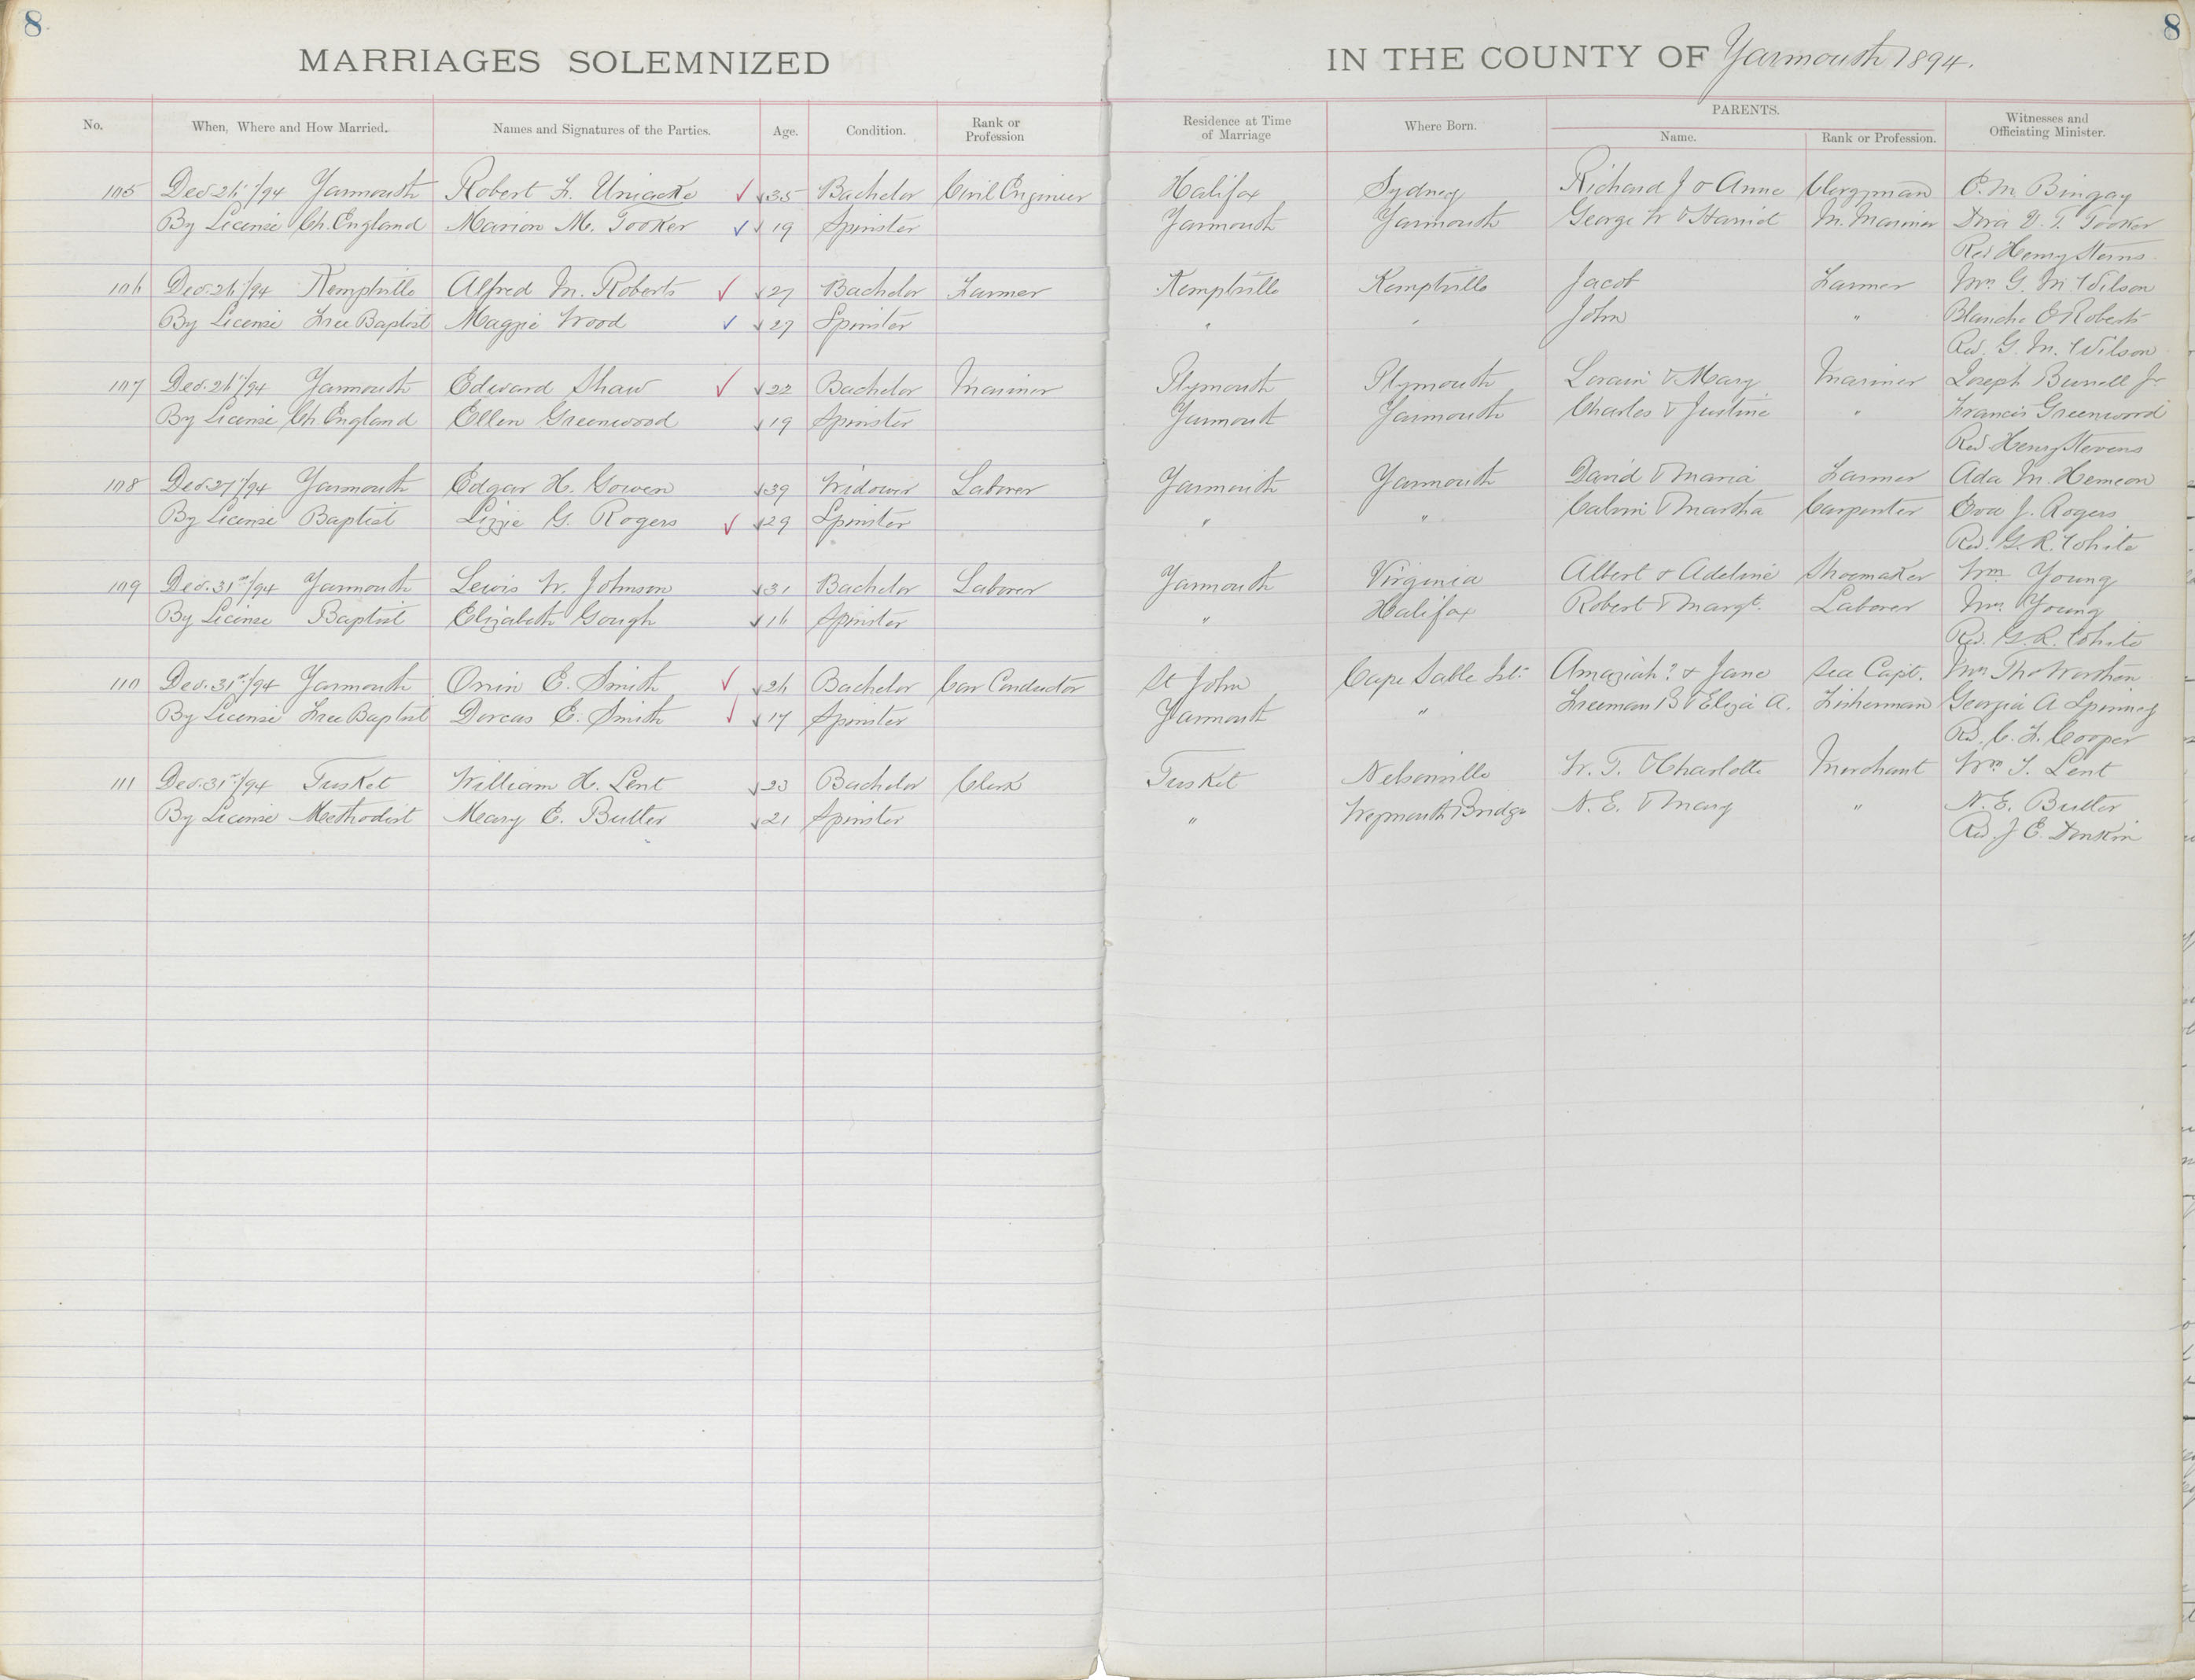 8 8
MARRIAGES SOLEMNIZED IN THE COUNTY OF Yarmouth 1894.
No. When, Where and How Married. Names and Signatures of the Parties. Age. Condition. Rank or Profession Residence at Time of Marriage Where Born. PARENTS. Name. Rank or Profession. Witnesses and Officiating Minister.
105 Dec. 26"/94 Yarmouth Robert F. Uniacke 35 Bachelor Civil Engineer Halifax Sydney Richard J & Anne Clergyman C. M. Bingay
By License Ch. England Marion M. Tooker 19 Spinster Yarmouth Yarmouth George W & Harriet M. Mariner Dora V. T. Tooker
Rev Henry Sterns
106 Dec. 26"/94 Kemptville Alfred M. Roberts 27 Bachelor Farmer Kemptville Kemptville Jacob Farmer Mrs G. M Wilson
By License Free Baptist Maggie Wood 27 Spinster " " John " Blanche E Roberts
Rev. G. M. Wilson
107 Dec. 26"/94 Yarmouth Edward Shaw 22 Bachelor Mariner Plymouth Plymouth & Mary Mariner Joseph Burrell Jr
By License Ch. England Ellen Greenwood 19 Spinster Yarmouth Yarmouth Charles & Justine " Francis Greenwood
Rev Henry Stevens
108 Dec 27"/94 Yarmouth Edgar H. Gowen 39 Widower Laborer Yarmouth Yarmouth David & Maria Farmer Ada M. Hemeon
By License Baptist Lizzie G. Rogers 29 Spinster " " Calvin & Martha Carpenter J. Rogers
Rev. G. R. White
109 Dec. 31st/94 Yarmouth Lewis W. Johnson 31 Bachelor Laborer Yarmouth Virginia Albert & Adeline Shoemaker Wm Young
By License Baptist Elizabeth Gough 16 Spinster " Halifax Robert & Margt. Laborer Mrs Young
Rev. G. R. White
110 Dec. 31st/94 Yarmouth Orrin E. Smith 26 Bachelor Car Conductor St John Cape Sable Isl. Amaziah? & Jane Sea Capt. Mrs Thos
By License Free Baptist Dorcas E. Smith 17 Spinster Yarmouth " Freeman B & Eliza A. Fisherman Georgia A Spinney
Rev. C. F. Cooper
111 Dec. 31st/94 Tusket William H. Lent 23 Bachelor Clerk Tusket Nelsonville W. T. & Charlotte Merchant Wm T. Lent
By License Methodist Mary E. Butler 21 Spinster " Weymouth Bridge N. E. & Mary " N. E. Butler
Rev. J E. Donkin